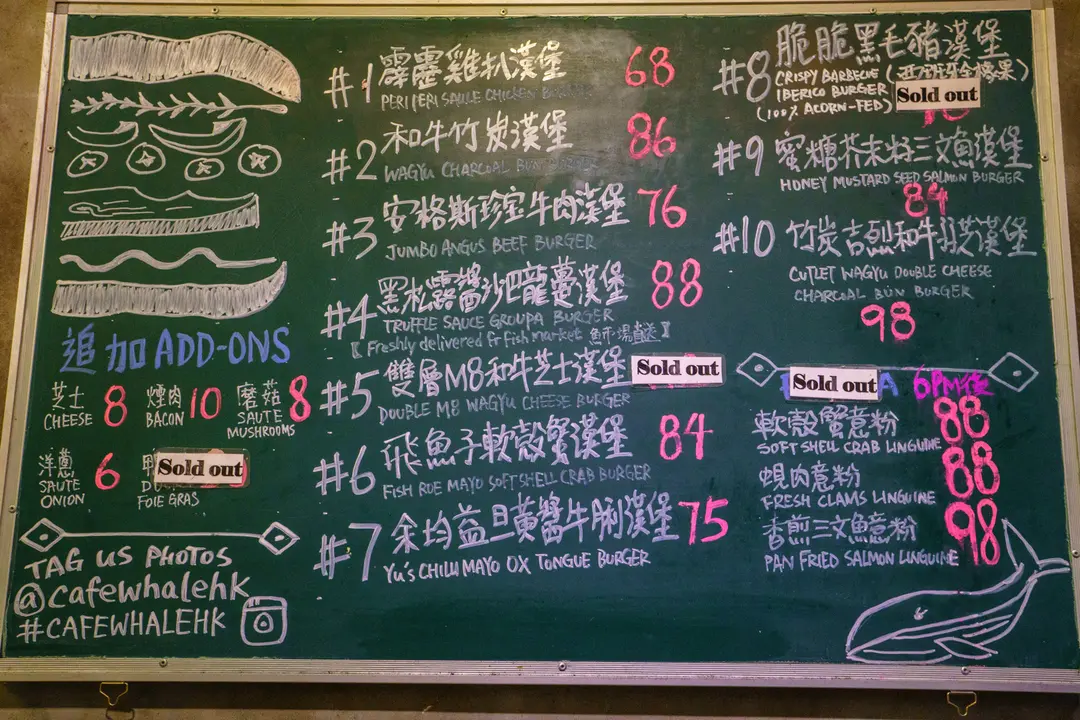 追加 ADD-ONS
芝士 8
CHEESE
煙肉 10
BACON
磨菇 8
SAUTE
MUSHROOMS
洋蔥 6
SAUTE
ONION
鴨
Sold out
FOIE GRAS
TAG US PHOTOS
@cafewhalehk
#CAFEWHALEHK
#1 霹靂雞扒漢堡 68
PERI PERI SAUCE CHICKEN
#2 和牛竹炭漢堡 86
WAGYU CHARCOAL BUN BURGER
#3 安格斯珍寶牛肉漢堡 76
JUMBO ANGUS BEEF BURGER
#4 黑松露醬沙巴龍躉漢堡 88
TRUFFLE SAUCE GROUPA BURGER
【Freshly delivered fr fish market 魚市場直送】
#5 雙層M8和牛芝士漢堡 Sold out
DOUBLE M8 WAGYU CHEESE BURGER
#6 飛魚子軟殼蟹漢堡 84
FISH ROE MAYO SOFTSHELL CRAB BURGER
#7 余均益旦黃醬牛脷漢堡 75
YU'S CHILLI MAYO OX TONGUE BURGER
#8 脆脆黑毛豬漢堡
CRISPY BARBECUE (西班牙食橡果)
IBERICO BURGER Sold out
(100% ACORN-FED)
#9 蜜糖芥末籽三文魚漢堡
HONEY MUSTARD SEED SALMON BURGER
84
#10 竹炭吉烈和牛双芝漢堡
CUTLET WAGYU DOUBLE CHEESE
CHARCOAL BUN BURGER
98
Sold out A 6PM後
軟殼蟹意粉 88
SOFT SHELL CRAB LINGUINE
蜆肉意粉 88
FRESH CLAMS LINGUINE
香煎三文魚意粉 98
PAN FRIED SALMON LINGUINE